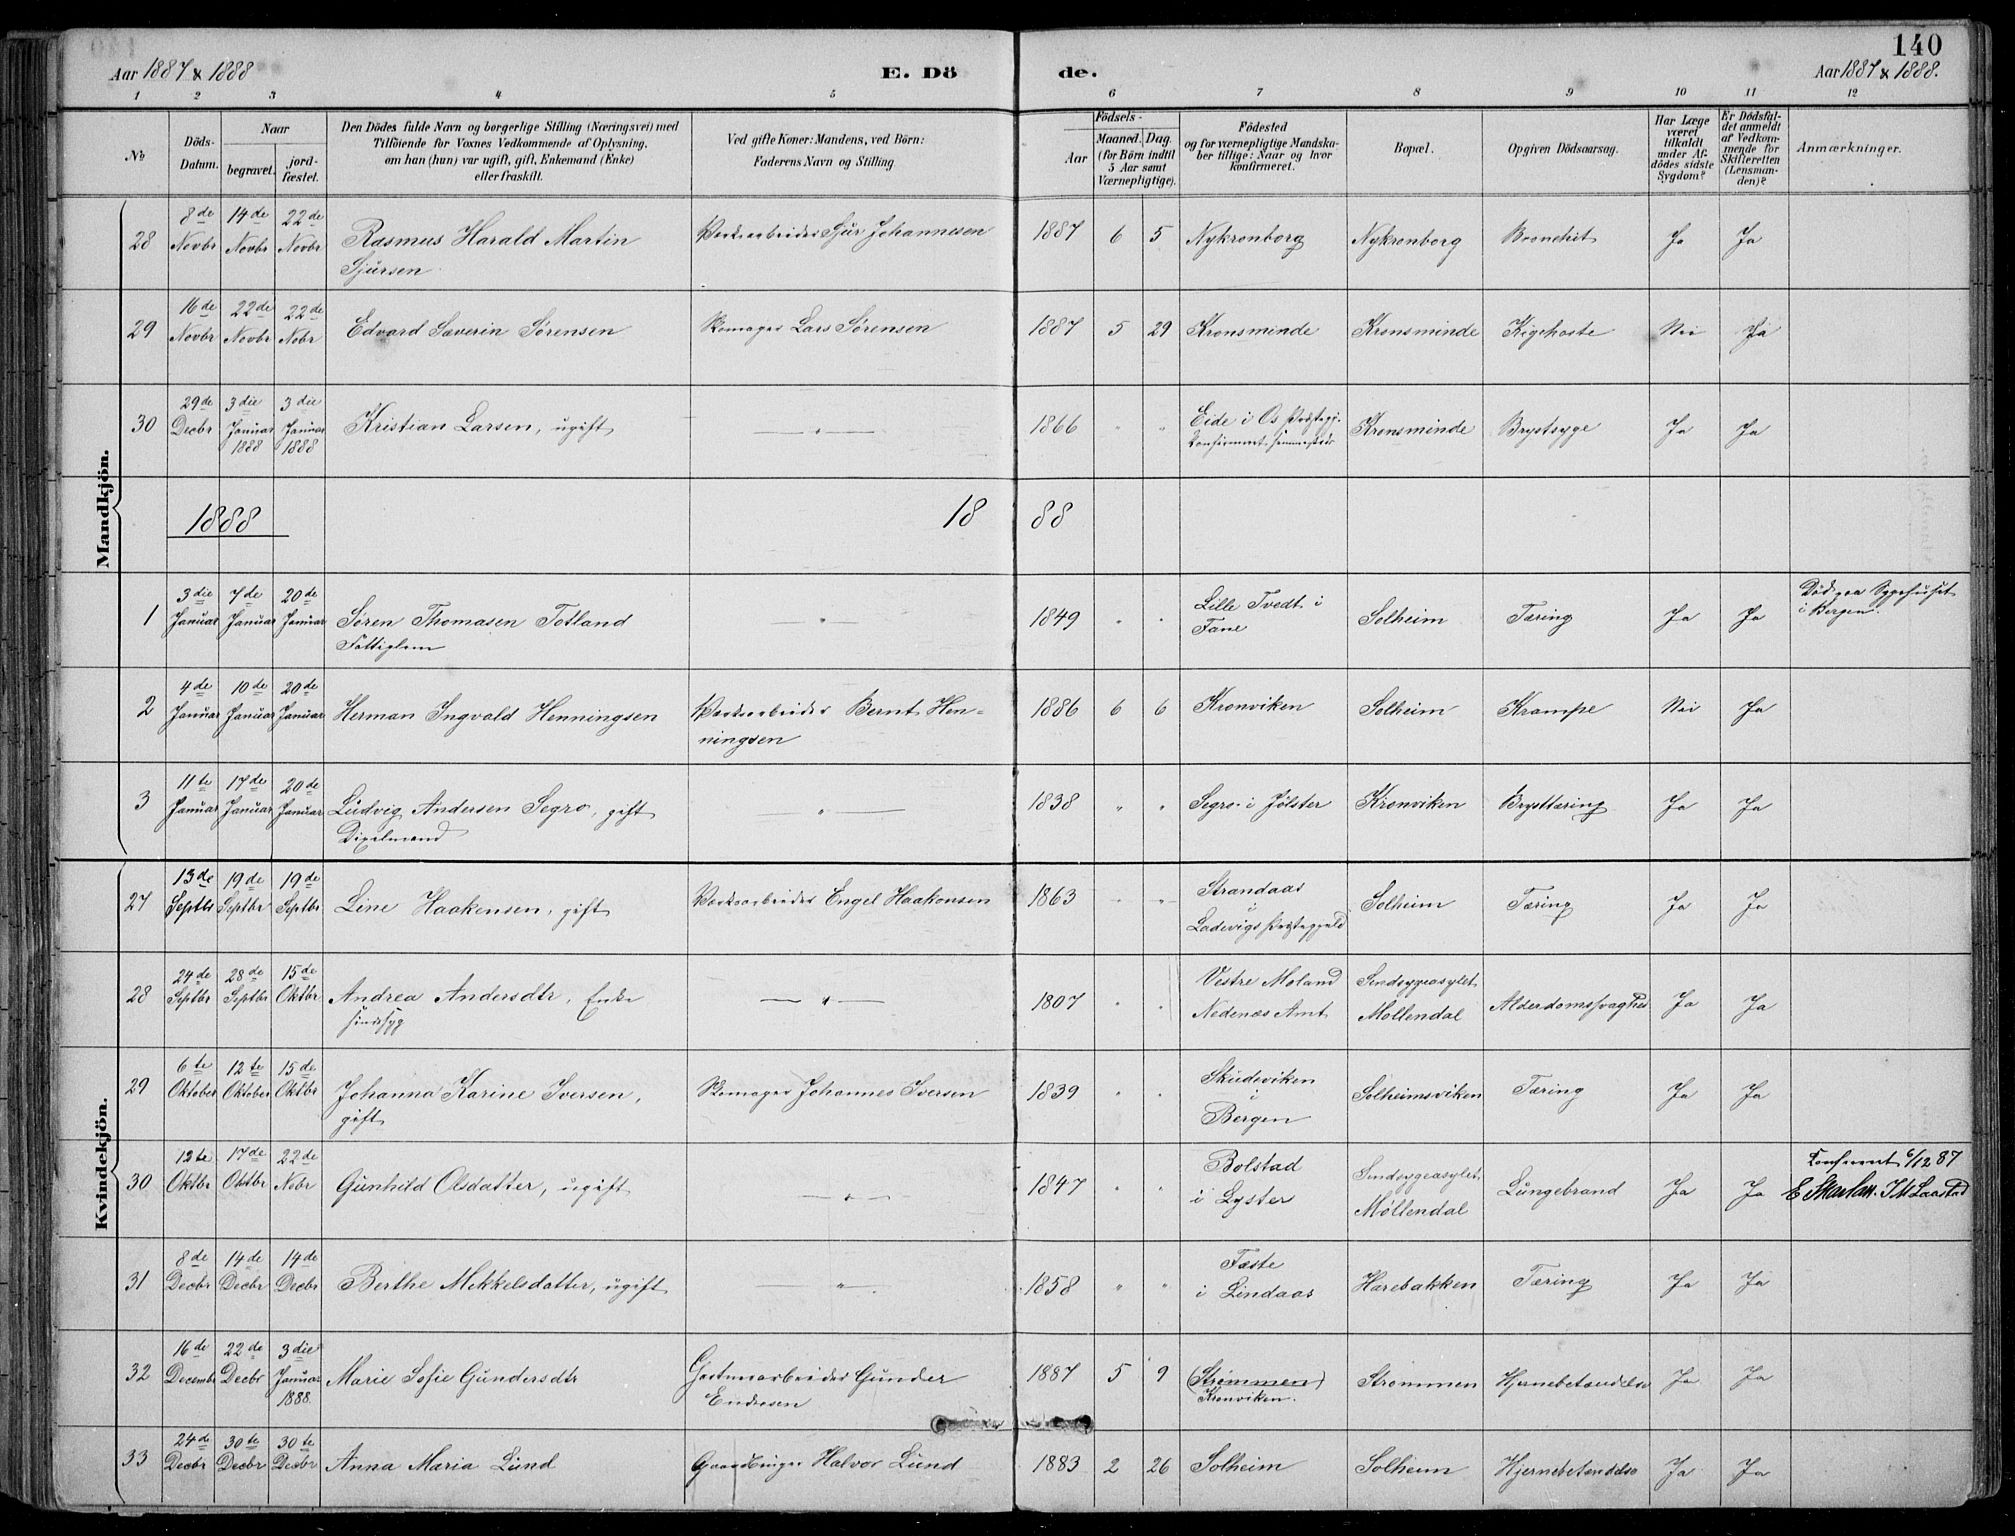 140
Aar 1887 & 1888
E. Dö
de.
Aar 1887 & 1888.
1 2 3 4 5 6 7 8 9 10 11 12
No
Döds-Datum.
Naar
begravet.
jord-fæstet.
Den Dödes fulde Navn og borgerlige Stilling (Næringsvei) med
Tilföiende for Voxnes Vedkommende af Oplysning,
om han (hun) var ugift, gift, Enkemand (Enke)
eller fraskilt.
Ved gifte Koner: Mandens, ved Börn:
Faderens Navn og Stilling
Födsels-
Aar
Maaned. Dag.
(for Börn indtil
5 Aar samt
Værnepligtige).
Födested
og for værnepligtige Mandska-
ber tillige: Naar og hvor
konfirmeret.
Bopæl.
Opgiven Dödsaarsag.
Har Læge
været
tilkaldt
under Af-
dödes sidste
Sygdom?
Er Dödsfal-
det anmeldt
af Vedkom-
mende for
Skifteretten
(Lensman-
den)?
Anmærkninger.
Mandkjön.
28 8de Novbr 14de Novbr 22de Novbr Rasmus Harald Martin Sjursen Værksarbeider Sjur Johannesen 1887 6 5 Nykronborg Nykronborg Bronchit Ja Ja
29 16de Novbr 22de Novbr 22de Nobr Edvard Severin Sörensen Skomager Lars Sörensen 1887 5 29 Kronsminde Kronsminde Kighoste Nei Ja
30 29de Decbr 3die Januar 1888 3die Januar 1888 Kristian Larsen, ugift — " — 1866 " " Eide i Os Kronsminde Brystsyge Ja Ja
1888 18 88
1 3die Januar 7de Januar 20de Januar Sören Thomasen Totland Fattiglem " 1849 " " Lille Tvedt i Fane Solheim Tæring Ja Ja Död paa Sygehuset i Bergen.
2 4de Januar 10de Januar 20de Januar Herman Ingvald Henningsen Værksarbeider Bernt Hen-
ningsen 1886 6 6 Kronviken Solheim Krampe Nei Ja
3 11te Januar 17de Januar 20de Januar Ludvig Andersen Segro, gift — " — 1838 " " Segro i Jölster Kronviken Brysttæring Ja Ja
Kvindekjön.
27 13de Septbr 19de Septbr 19de Septbr Line Haakensen, gift Værksarbeider Engel Haakonsen 1863 " " Strandaas i Ladevigs Præstegjæld Solheim Tæring Ja Ja
28 24de Septbr 28de Septbr 15de Oktbr Andrea Andersdtr, Enke sindssyg — " — 1807 " " Vestre Moland Nedenæs Amt Sindsygeasylet Möllendal Alderdomssvaghed Ja Ja
29 6te Oktober 12te Oktober 15de Oktbr Johanna Karine Iversen, gift Skomager Johannes Iversen 1839 " " Skudeviken i Bergen Solheimsviken Tæring Ja Ja
30 12te Oktbr 17de Oktbr 22de Nobr Gunhild Olsdatter, ugift — " — 1847 " " Bolstad i Lyster Sindsygeasylet Möllendal Lungebrand Ja Ja 6/12 87
31 8de Decbr 14de Decbr 14de Decbr Berthe Mikkelsdatter, ugift — " — 1858 " " Fæste i Lindaas Harebakken Tæring Ja Ja
32 16de Decembr 22de Decbr 3die Januar 1888. Marie Sofie Gundersdtr Gartnerarbeider Gunder Endresen 1887 5 9 (Strömmen) Kronviken. Strömmen Hjernebetændelse Ja Ja
33 24de Decbr 30te Decbr 30te Decbr Anna Maria Lund Halvor Lund 1883 2 26 Solheim Solheim Hjernebetendelse Ja Ja